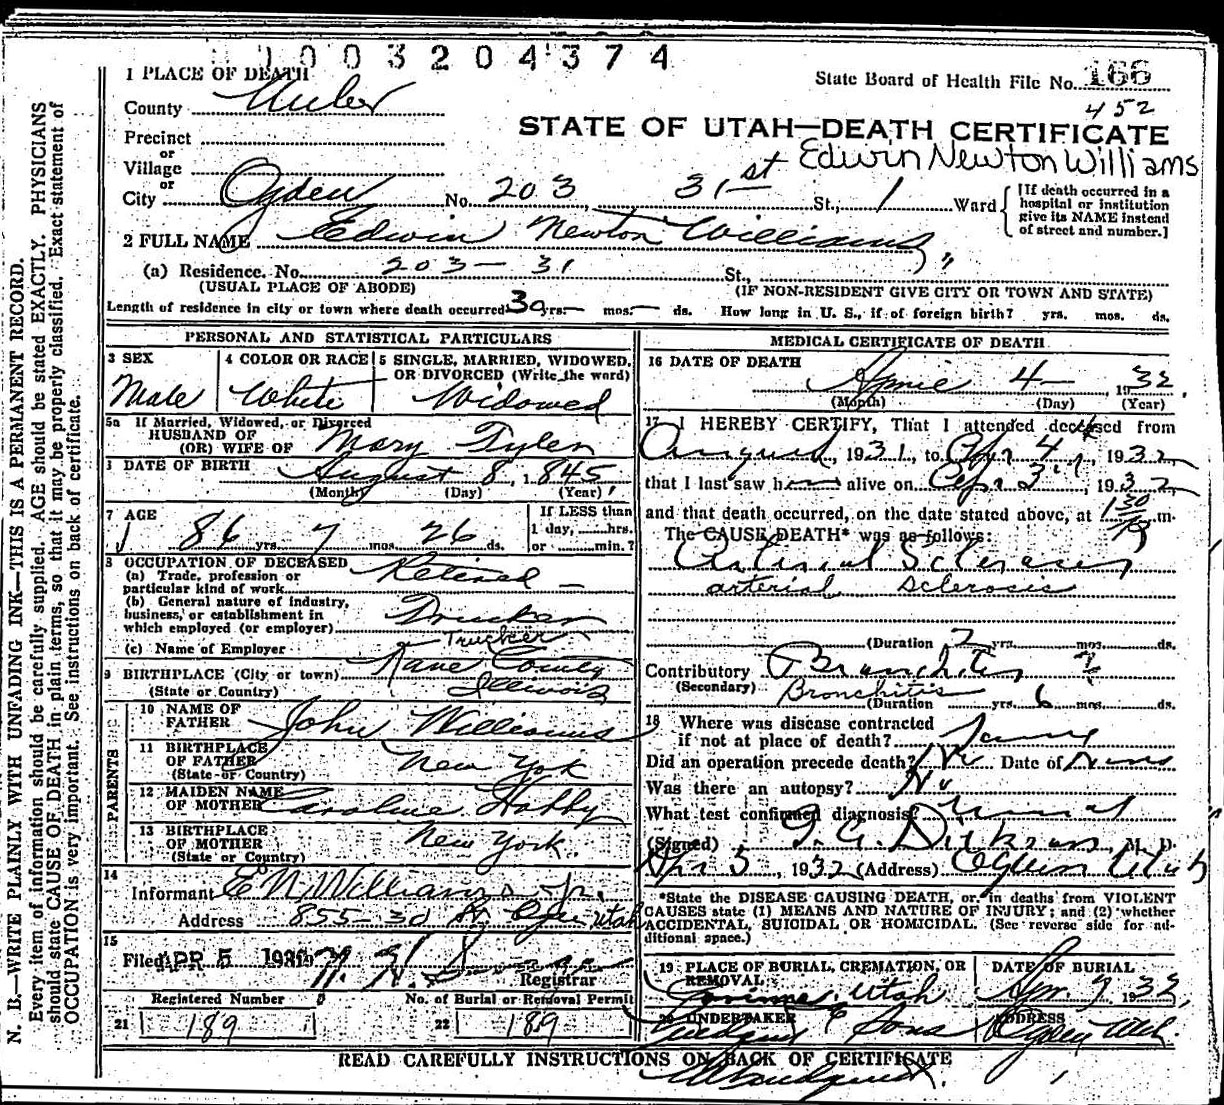 1003204374
1 PLACE OF DEATH
State Board of Health File No. 166
452
County Weber
STATE OF UTAH—DEATH CERTIFICATE
Precinct
or
Edwin Newton Williams
Village
or
City Ogden No. 203 31st St., 1 Ward
[If death occurred in a hospital or institution give its NAME instead of street and number.]
2 FULL NAME Edwin Newton Williams
(a) Residence. No. 203 - 31 St., "
(USUAL PLACE OF ABODE) (IF NON-RESIDENT GIVE CITY OR TOWN AND STATE)
Length of residence in city or town where death occurred 30 yrs. — mos. — ds. How long in U. S., if of foreign birth? yrs. mos. ds.
PERSONAL AND STATISTICAL PARTICULARS
3 SEX
Male
4 COLOR OR RACE
White
5 SINGLE, MARRIED, WIDOWED, OR DIVORCED (Write the word)
Widowed
5a If Married, Widowed, or Divorced
HUSBAND OF
(OR) WIFE OF Mary Tyler
DATE OF BIRTH August 8, 1845
(Month) (Day) (Year)
7 AGE
86 yrs. 7 mos. 26 ds.
If LESS than
1 day, hrs.
or min.?
8 OCCUPATION OF DECEASED
(a) Trade, profession or
particular kind of work Retired —
(b) General nature of industry,
business, or establishment in
which employed (or employer) Trucker
Trucker
(c) Name of Employer
9 BIRTHPLACE (City or town) Kane County
(State or Country) Illinois
PARENTS
10 NAME OF
FATHER John Williams
11 BIRTHPLACE
OF FATHER New York
(State or Country)
12 MAIDEN NAME
OF MOTHER Caroline Hobby
13 BIRTHPLACE
OF MOTHER New York.
(State or Country)
14
Informant E N Williams Jr.
Address 855-30 St. Ogden, Utah
15
Filed APR 5 193
Registrar
Registered Number No. of Burial or Removal Permit
21 189 22 189
MEDICAL CERTIFICATE OF DEATH
16 DATE OF DEATH
4— 1932
(Month) (Day) (Year)
17 I HEREBY CERTIFY, That I attended deceased from
August, 1931, to Apr 4, 1932
that I last saw him alive on Apr 3rd, 1932
and that death occurred, on the date stated above, at 1 30 m.
The CAUSE DEATH* was as follows:
Arterial Sclerosis
arterial sclerosis
(Duration 2 yrs. mos. ds.
Contributory Bronchitis
(Secondary) Bronchitis
(Duration yrs. 6 mos. ds.
18 Where was disease contracted
if not at place of death?
Did an operation precede death? No Date of
Was there an autopsy? No
What test confirmed diagnosis?
(Signed) M. D.
Apr 5, 1932 (Address) Ogden Utah
*State the DISEASE CAUSING DEATH, or in deaths from VIOLENT
CAUSES state (1) MEANS AND NATURE OF INJURY; and (2) whether
ACCIDENTAL, SUICIDAL OR HOMICIDAL. (See reverse side for additional space.)
19 PLACE OF BURIAL, CREMATION, OR
REMOVAL
Corinne, Utah
DATE OF BURIAL
Apr. 7 1932
20 UNDERTAKER
& Sons
ADDRESS
Ogden Utah.
READ CAREFULLY INSTRUCTIONS ON BACK OF CERTIFICATE
N. B.—WRITE PLAINLY WITH UNFADING INK—THIS IS A PERMANENT RECORD.
Every item of information should be carefully supplied. AGE should be stated EXACTLY. PHYSICIANS
should state CAUSE OF DEATH in plain terms, so that it may be properly classified. Exact statement of
OCCUPATION is very important. See instructions on back of certificate.